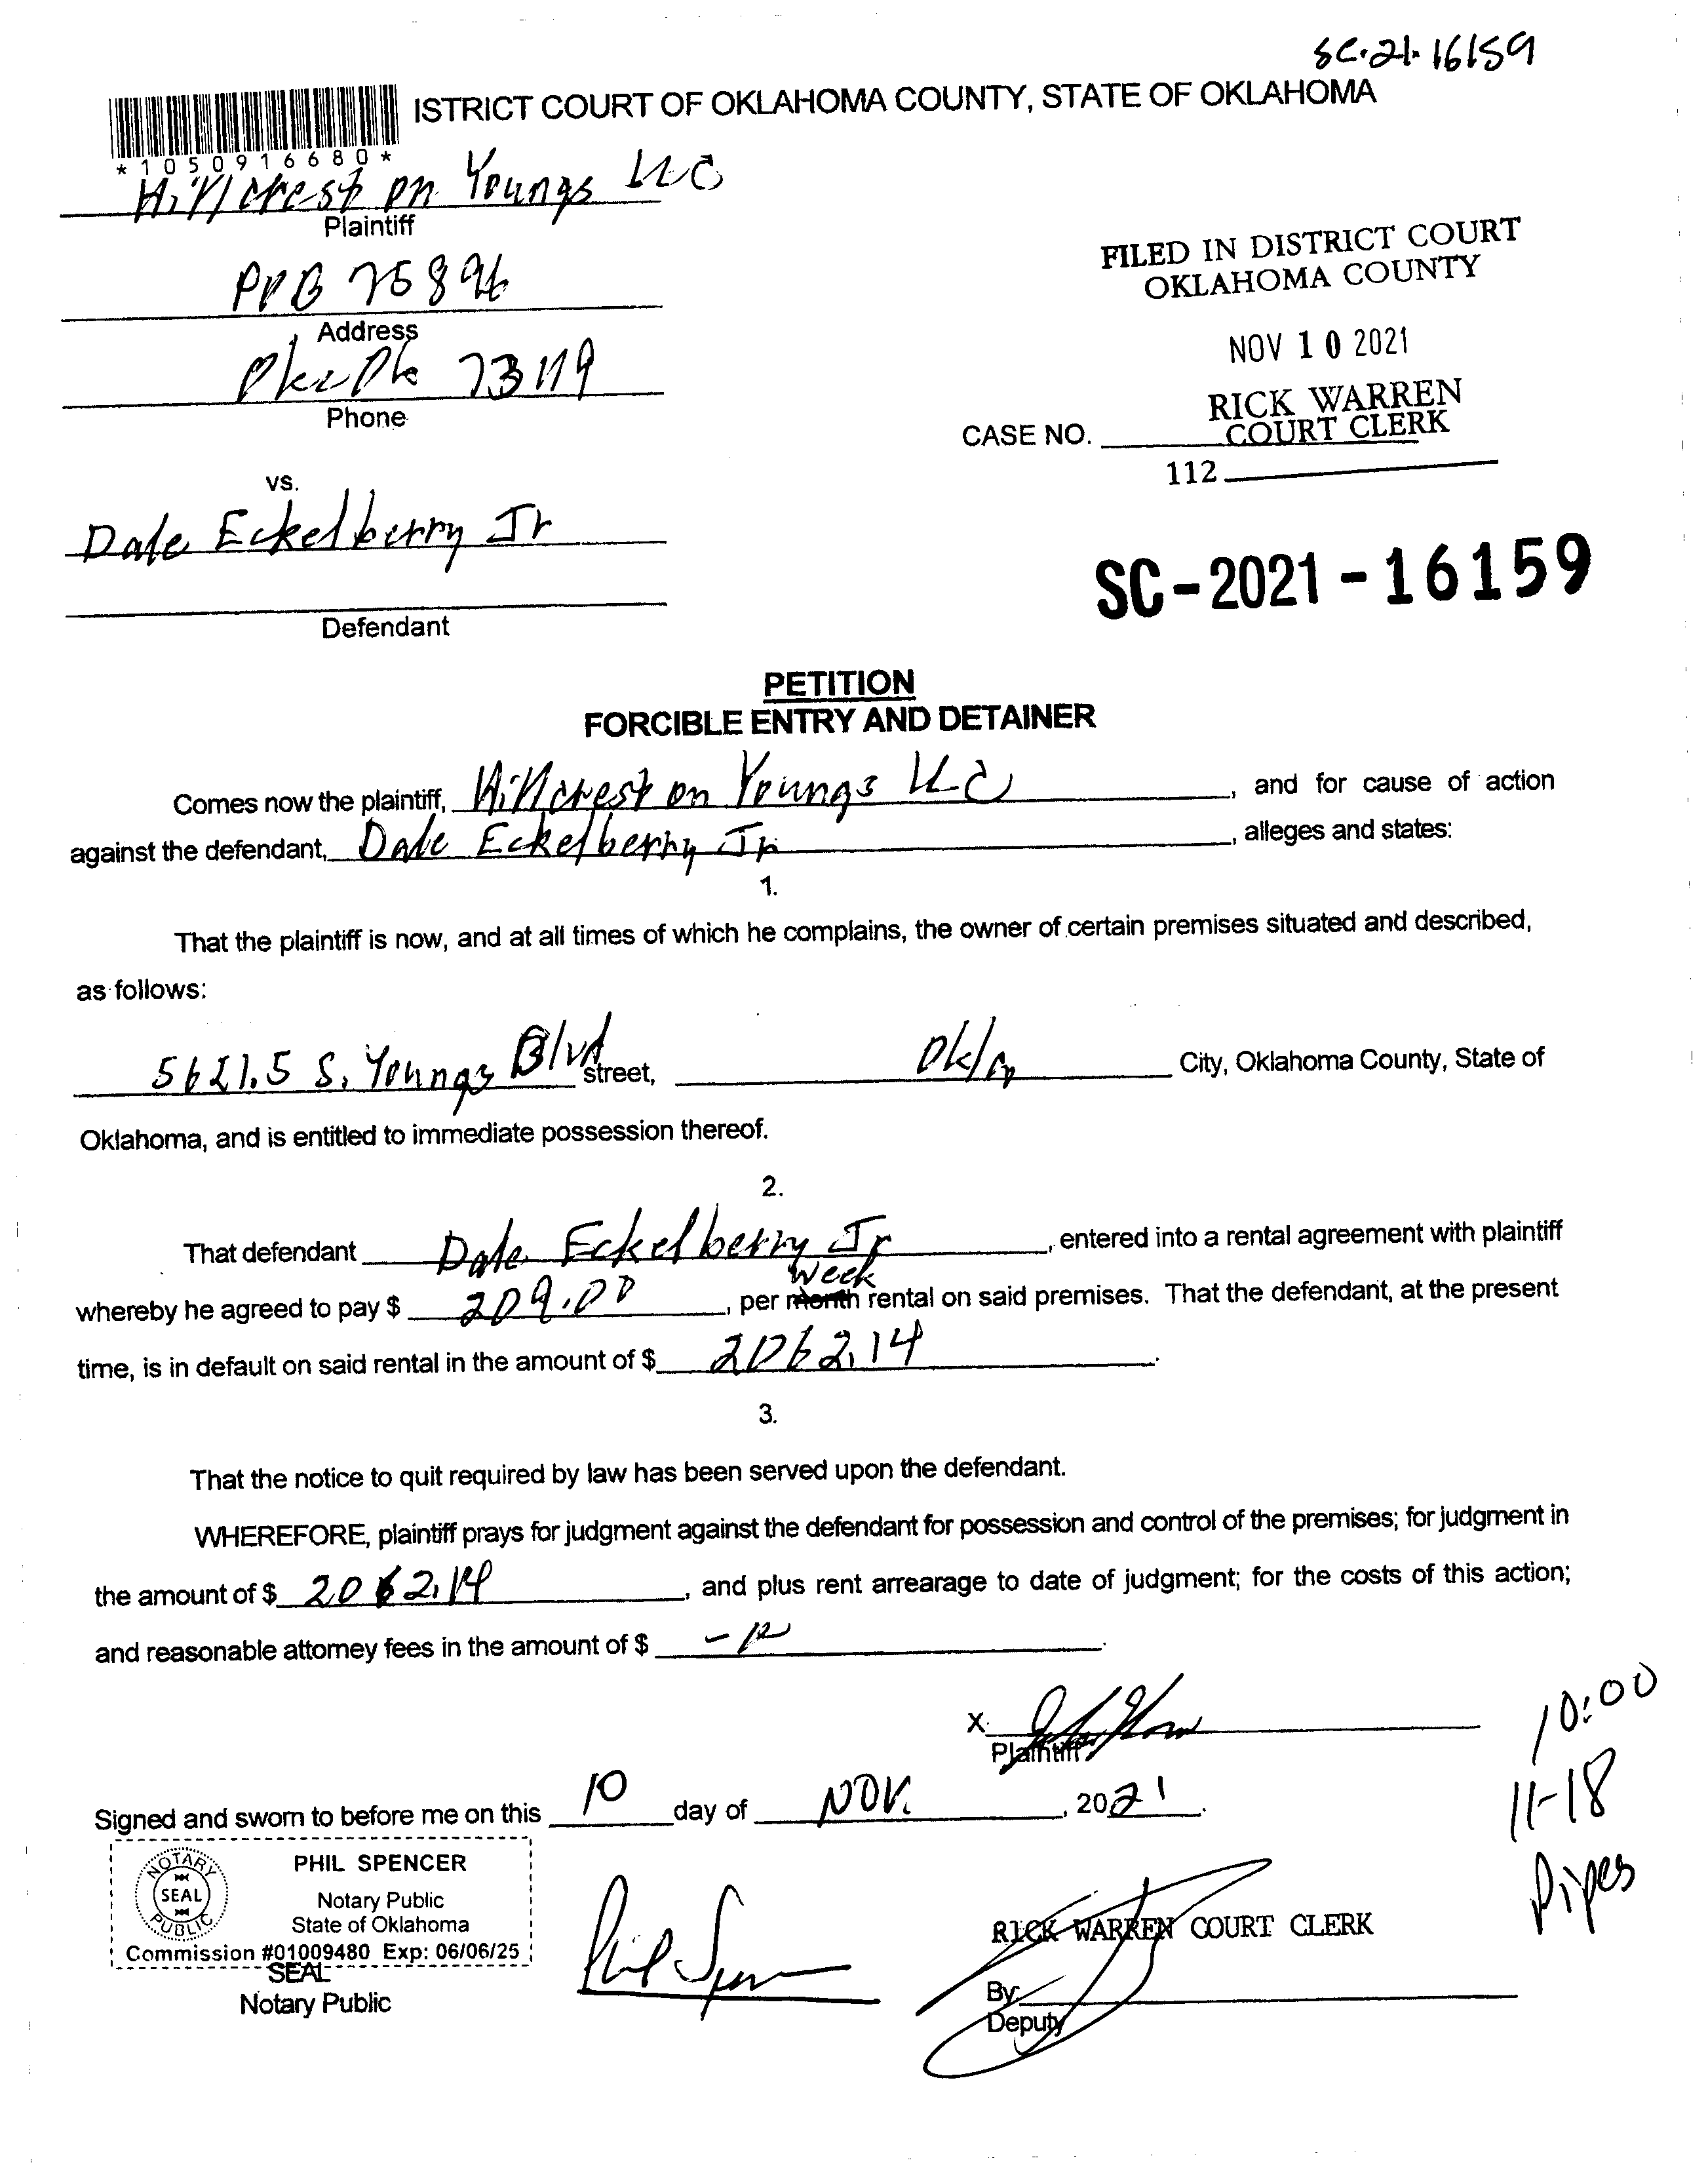 SC-21-16159
ISTRICT COURT OF OKLAHOMA COUNTY, STATE OF OKLAHOMA
*1050916680*
Hillcrest on Youngs LLC
Plaintiff
POB 75896
Address
73119
Phone
FILED IN DISTRICT COURT
OKLAHOMA COUNTY
NOV 10 2021
RICK WARREN
COURT CLERK
CASE NO.
112
vs.
Dale Eckelberry Jr
Defendant
SC-2021-16159
PETITION
FORCIBLE ENTRY AND DETAINER
Comes now the plaintiff, Hillcrest on Youngs LLC, and for cause of action
against the defendant, Dale Eckelberry Jr, alleges and states:
1.
That the plaintiff is now, and at all times of which he complains, the owner of certain premises situated and described,
as follows:
5621.5 S. Youngs Blvd street, City, Oklahoma County, State of
Oklahoma, and is entitled to immediate possession thereof.
2.
That defendant Dale Eckelberry Jr, entered into a rental agreement with plaintiff
whereby he agreed to pay $ 209.00, per month Week rental on said premises. That the defendant, at the present
time, is in default on said rental in the amount of $ 2062.14.
3.
That the notice to quit required by law has been served upon the defendant.
WHEREFORE, plaintiff prays for judgment against the defendant for possession and control of the premises; for judgment in
the amount of $ 2062.14, and plus rent arrearage to date of judgment; for the costs of this action;
and reasonable attorney fees in the amount of $
X
Plaintiff
10:00
11-18
Pipes
Signed and sworn to before me on this 10 day of NOV., 2021.
NOTARY PUBLIC SEAL
PHIL SPENCER
Notary Public
State of Oklahoma
Commission #01009480 Exp: 06/06/25
SEAL
Notary Public
Phil Spencer
RICK WARREN COURT CLERK
By
Deputy